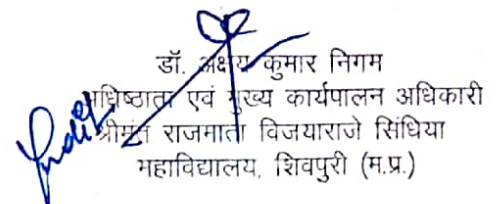 डॉ. अक्षय कुमार निगम
अधिष्ठाता एवं मुख्य कार्यपालन अधिकारी
श्रीमंत राजमाता विजयाराजे सिंधिया
महाविद्यालय, शिवपुरी (म.प्र.)